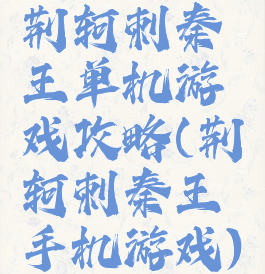 荆轲刺秦
王单机游
戏攻略(荆
轲刺秦王
手机游戏)